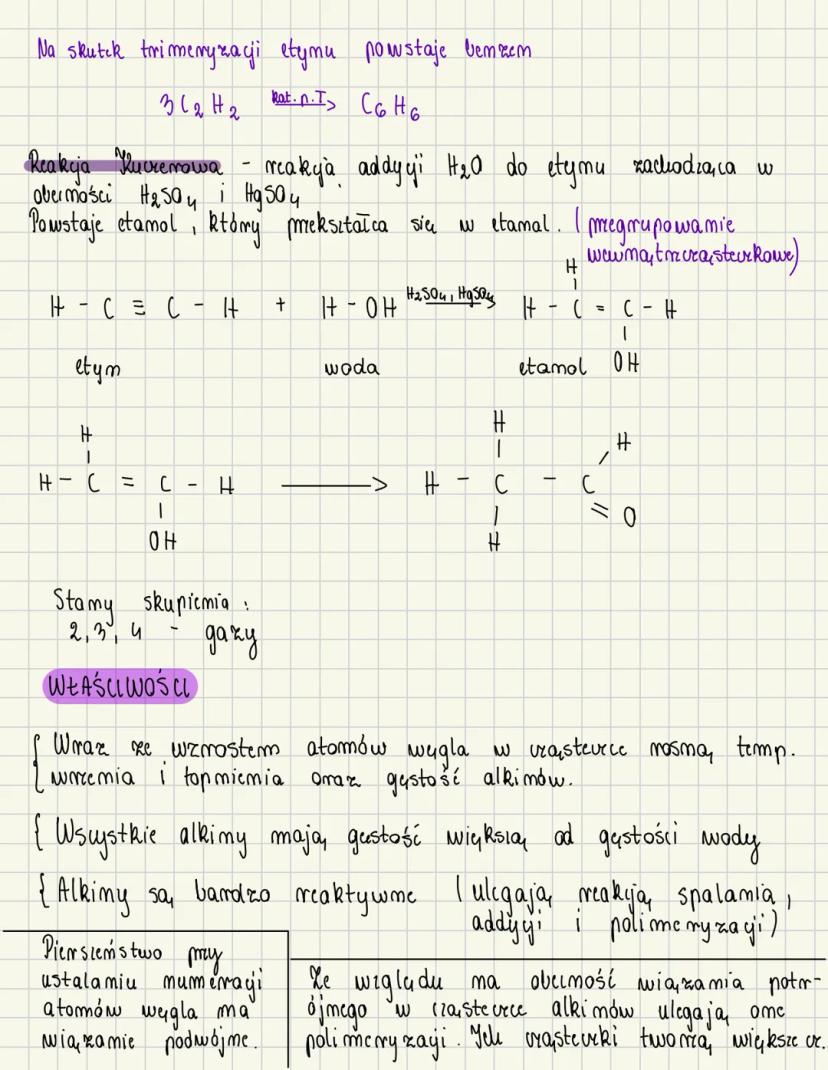 Na skutek trimeryzacji etynu powstaje benzen
3C₂H₂ kat. p. T → C₆H₆
Reakcja Kuczerowa - reakcja addycji H₂O do etynu zachodząca w
obecności H₂SO₄ i HgSO₄.
Powstaje etanol, który przekształca się w etanal. (przegrupowanie
wewnątrzcząsteczkowe)
H
H - C ≡ C - H + H - OH H₂SO₄, HgSO₄ → H - C = C - H
etyn woda etanol OH
H H H
H - C = C - H → H - C - C
OH H O
Stany skupienia:
2, 3, 4 - gazy
WŁAŚCIWOŚCI
{ Wraz ze wzrostem atomów węgla w cząsteczce rosną temp.
wrzenia i topnienia oraz gęstość alkinów.
{ Wszystkie alkiny mają gęstość większą od gęstości wody
{ Alkiny są bardzo reaktywne (ulegają reakcją spalania,
addycji i polimeryzacji)
Pierwszeństwo przy
ustalaniu numeracji
atomów węgla ma
wiązanie podwójne.
Ze względu na obecność wiązania potr-
ójnego w cząsteczce alkinów ulegają one
polimeryzacji. Ich cząsteczki tworzą większe cz.